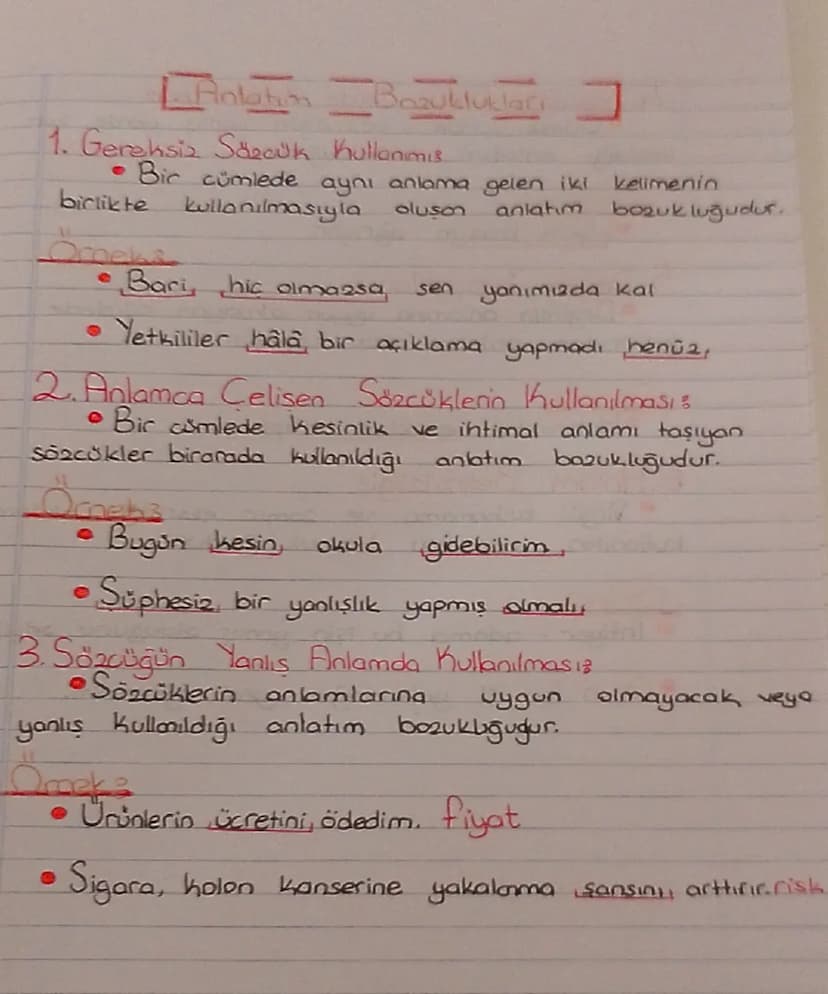 Anlatım Bozuklukları
1. Gereksiz Sözcük Kullanımış
• Bir cümlede aynı anlama gelen iki kelimenin
birlikte kullanılmasıyla oluşan anlatım bozukluğudur.
Örnek:
• Bari, hiç olmazsa, sen yanımızda kal
• Yetkililer hâlâ, bir açıklama yapmadı henüz,
2. Anlamca Çelişen Sözcüklerin Kullanılması:
• Bir cümlede kesinlik ve ihtimal anlamı taşıyan
sözcükler birarada kullanıldığı anlatım bozukluğudur.
Örnek:
• Bugün kesin, okula gidebilirim,
• Şüphesiz, bir yanlışlık yapmış olmalı,
3. Sözcüğün Yanlış Anlamda Kullanılması:
• Sözcüklerin anlamlarına uygun olmayacak veya
yanlış kullanıldığı anlatım bozukluğudur.
Örnek:
• Ürünlerin ücretini, ödedim. fiyat
• Sigara, kolon kanserine yakalanma şansını, arttırır. risk